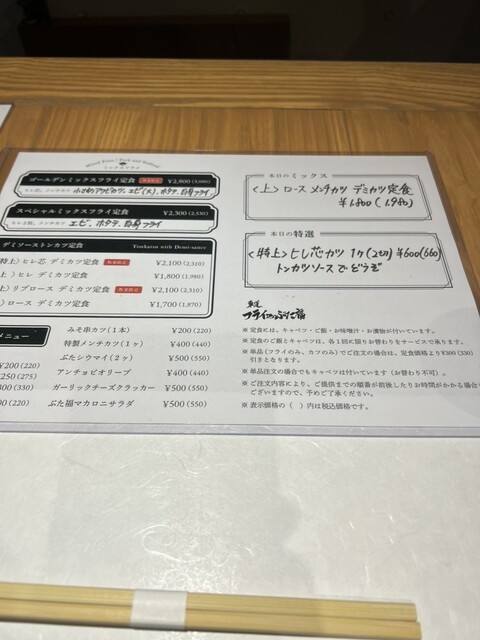 Mixed Fries / Pork and Seafood
ミックスフライ
ゴールデンミックスフライ定食 数量限定 ¥2,800 (3,080)
エビ(大)、ホタテ、白身フライ
スペシャルミックスフライ定食 ¥2,300 (2,530)
エビ、ホタテ、白身フライ
デミソーストンカツ定食 Tonkatsu with Demi-sauce
特上〉ヒレ芯 デミカツ定食 数量限定 ¥2,100 (2,310)
上〉ヒレ デミカツ定食 ¥1,800 (1,980)
上〉リブロース デミカツ定食 数量限定 ¥2,100 (2,310)
〉ロース デミカツ定食 ¥1,700 (1,870)
メニュー
みそ串カツ(1本) ¥200 (220)
特製メンチカツ(1ヶ) ¥400 (440)
ぶたシウマイ(2ヶ) ¥500 (550)
アンチョビオリーブ ¥400 (440)
ガーリックチーズクラッカー ¥500 (550)
ぶた福マカロニサラダ ¥500 (550)
¥200 (220)
250 (275)
300 (330)
00 (220)
本日のミックス
〈上〉ロース メンチカツ デミカツ定食
¥1,800 (1,980)
本日の特選
〈特上〉ヒレ芯カツ 1ケ ¥600(660)
トンカツソースでどうぞ
※ 定食には、キャベツ・ご飯・お味噌汁・お漬物が付いています。
※ 定食のご飯とキャベツは、各1回に限りお替わりをサービスで承ります。
※ 単品(フライのみ、カツのみ)でご注文の場合は、定食価格より¥300 (330)
引きとなります。
※ 単品注文の場合でもキャベツは付いています(お替わり不可)。
※ ご注文内容により、ご提供までの順番が前後したりお時間がかかる場合
ございますので、予めご了承ください。
※ 表示価格の( )内は税込価格です。